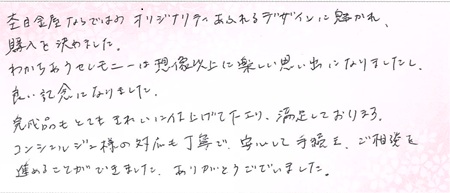 杢目金屋ならではのオリジナリティあふれるデザインに魅かれ、
購入を決めました。
わかちあうセレモニーは想像以上に楽しい思い出になりましたし、
良い記念になりました。
完成品もとてもきれいに仕上げて下さり、満足しております。
コンシェルジュ様の対応も丁寧で、安心して手続き、ご相談を
進めることができました。ありがとうございました。